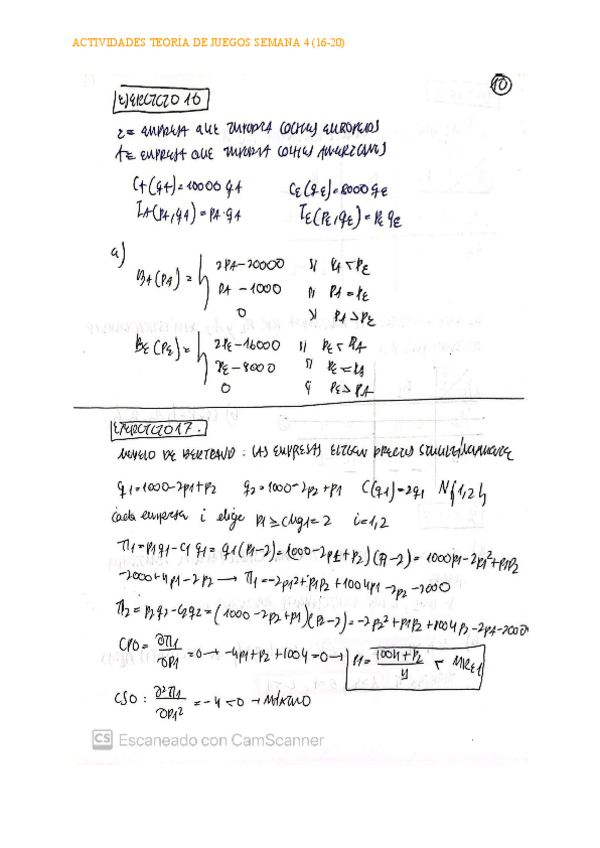 ACTIVIDADES TEORÍA DE JUEGOS SEMANA 4 (16-20)
10
EJERCICIO 16
E = EMPRESA QUE IMPORTA COCHES EUROPEOS
A = EMPRESA QUE IMPORTA COCHES AMERICANOS
CA(qA)=10000 qA CE(qE)=8000 qE
IA(PA,qA)=PA·qA IE(PE,qE)=PE qE
a)
BA(PA) = { 2PA-20000 si PA < PE
PA-1000 si PA = PE
0 si PA > PE
BE(PE) = { 2PE-16000 si PE < PA
PE-8000 si PE = PA
0 si PE > PA
EJERCICIO 17.
MODELO DE BERTRAND: LAS EMPRESAS ELIGEN PRECIOS SIMULTÁNEAMENTE
q1=1000-2p1+p2 q2=1000-2p2+p1 C(q1)=2q1 N{1,2}
cada empresa i elige pi ≥ CMg1=2 i=1,2
Π1=p1q1-C1q1=q1(P1-2)=(1000-2p1+p2)(P1-2)=1000p1-2p1²+p1p2
-2000+4p1-2p2 → Π1=-2p1²+p1p2+1004p1-2p2-2000
Π2=p2q2-C2q2=(1000-2p2+p1)(P2-2)=-2p2²+p1p2+1004p2-2p1-2000
CPO=∂Π1/∂P1=0→-4p1+p2+1004=0→ P1=1004+P2/4 < MRE1
CSO: ∂²Π1/∂P1²=-4<0→MÁXIMO
CS Escaneado con CamScanner